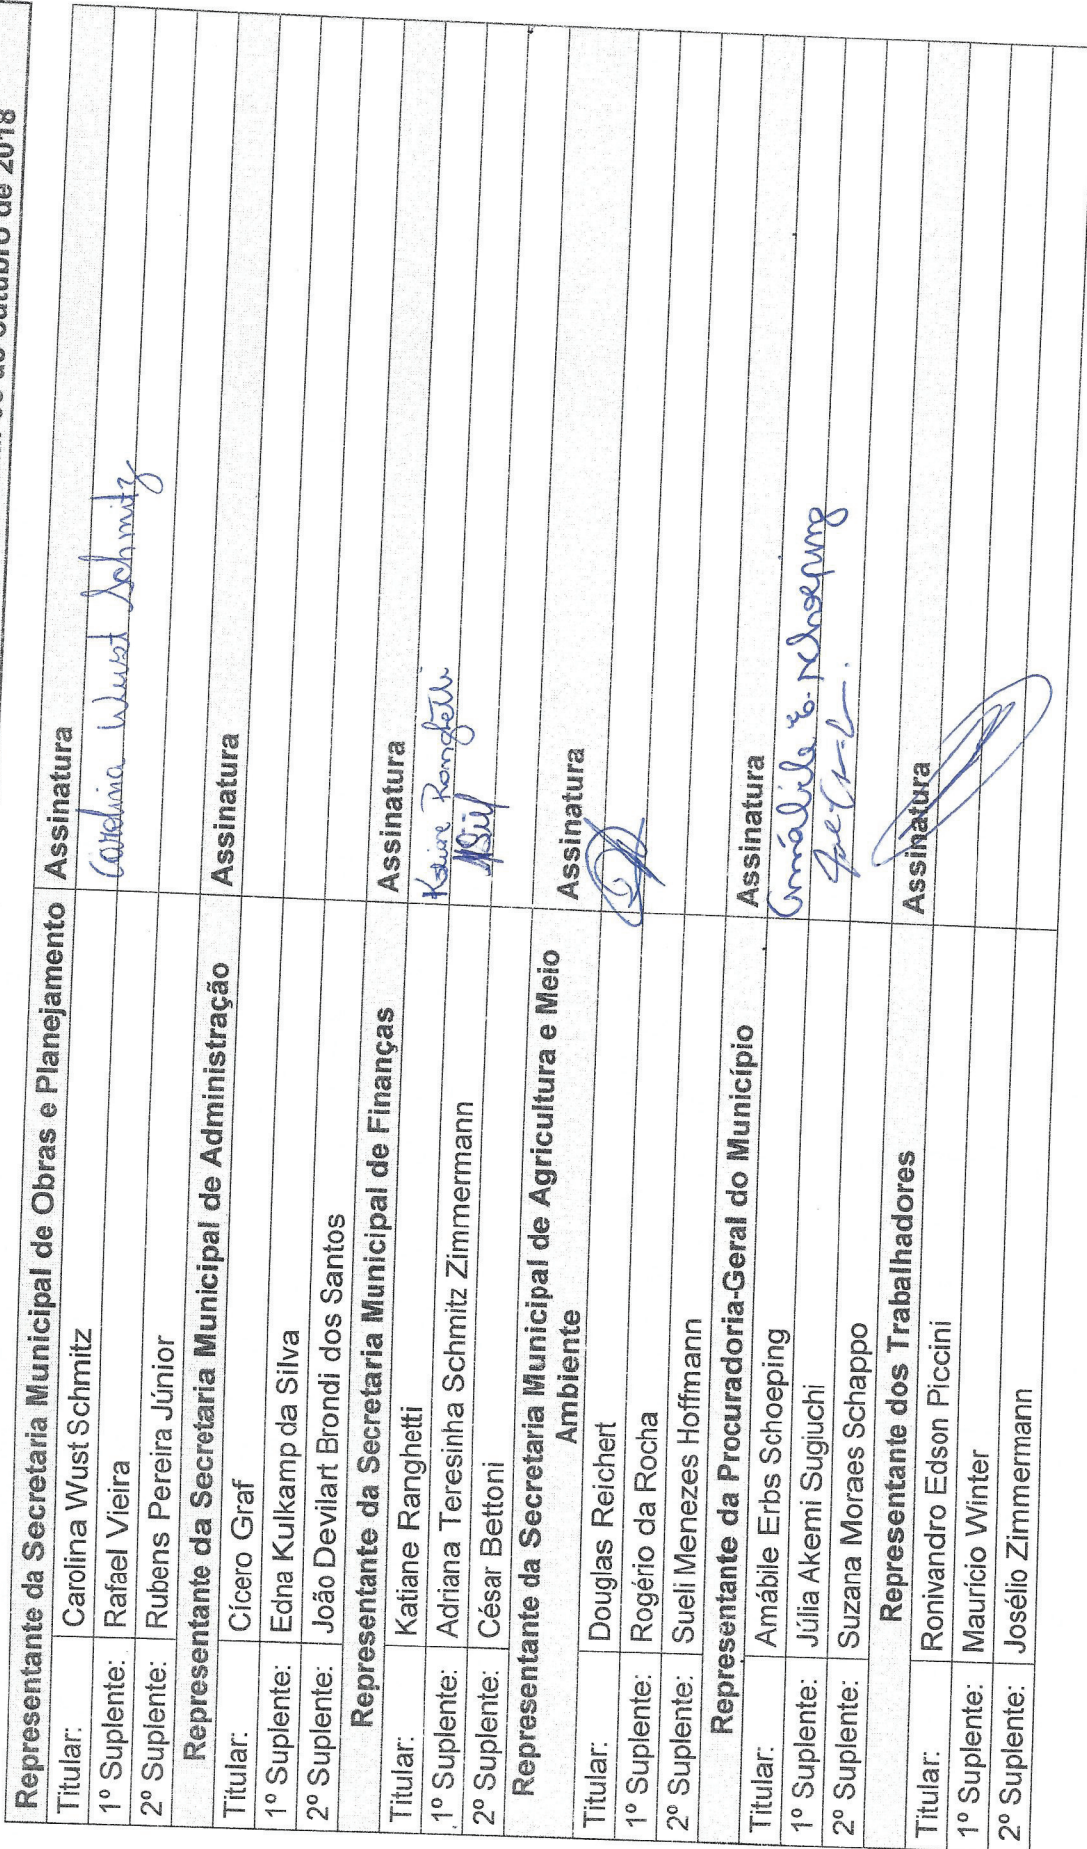 de outubro de 2018
Representante da Secretaria Municipal de Obras e Planejamento Assinatura
Titular: Carolina Wust Schmitz Carolina Wust Schmitz
1º Suplente: Rafael Vieira
2º Suplente: Rubens Pereira Júnior
Representante da Secretaria Municipal de Administração Assinatura
Titular: Cícero Graf
1º Suplente: Edna Kulkamp da Silva
2º Suplente: João Devilart Brondi dos Santos
Representante da Secretaria Municipal de Finanças Assinatura
Titular: Katiane Ranghetti Katiane Ranghetti
1º Suplente: Adriana Teresinha Schmitz Zimmermann
2º Suplente: César Bettoni
Representante da Secretaria Municipal de Agricultura e Meio
Ambiente Assinatura
Titular: Douglas Reichert
1º Suplente: Rogério da Rocha
2º Suplente: Sueli Menezes Hoffmann
Representante da Procuradoria-Geral do Município Assinatura
Titular: Amábile Erbs Schoeping Amábile E. Schoeping
1º Suplente: Júlia Akemi Sugiuchi
2º Suplente: Suzana Moraes Schappo
Representante dos Trabalhadores Assinatura
Titular: Ronivandro Edson Piccini
1º Suplente: Maurício Winter
2º Suplente: Josélio Zimmermann